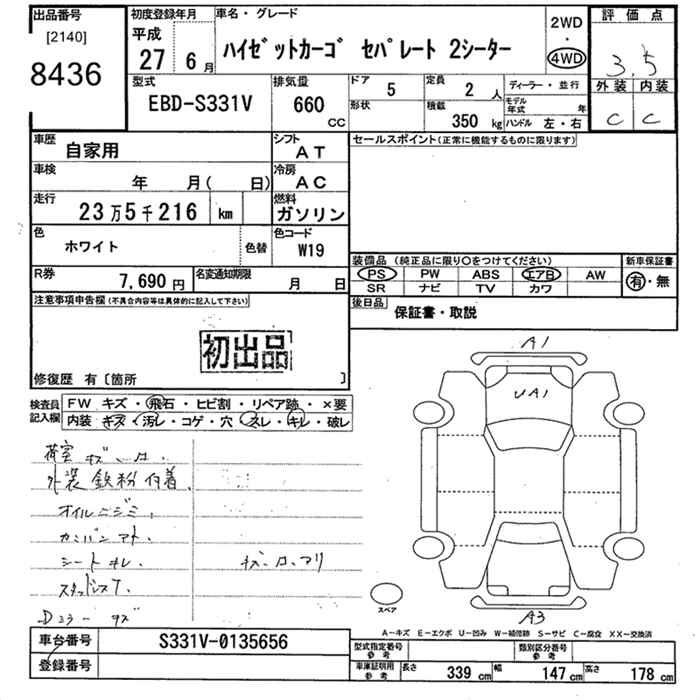 出品番号
[2140]
8436
初度登録年月
平成
27年 6月
車名・グレード
ハイゼットカーゴ セパレート 2シーター
2WD
・
4WD
評価点
3.5
外装 内装
C C
型式
EBD-S331V
排気量
660
CC
ドア 5
定員 2 人
ディーラー・並行
形状
積載 350 kg
モデル年式 年
ハンドル 左・右
車歴 自家用
シフト AT
セールスポイント(正常に機能するものに限ります)
車検 年 月( 日)
冷房 AC
走行 23万5千216 km
燃料 ガソリン
色 ホワイト
色替
色コード W19
装備品 (純正品に限り○をつけてください)
新車保証書
PS PW ABS エアB AW
有・無
SR ナビ TV カワ
R券 7,690円
名変通知期限 月 日
後日品 保証書・取説
注意事項申告欄(不具合内容等は具体的に記入して下さい)
初出品
修復歴 有〔箇所 〕
検査員記入欄
FW キズ・飛石・ヒビ割・リペア跡・×要
内装・キズ・汚レ・コゲ・穴・スレ・キレ・破レ
荷室 キズ・凹.
外装 鉄粉付着.
オイルニジミ.
カンバンアト.
シートキレ.
キズ・凹アリ
スタッドレスT.
Dミラーキズ
A1
UA1
A3
スペア
A-キズ E-エクボ U-凹み W-補修跡 S-サビ C-腐食 XX-交換済
車台番号 S331V-0135656
登録番号
型式指定番号 参考
類別区分番号 参考
車庫証明用 参考 長さ 339 cm 幅 147 cm 高さ 178 cm